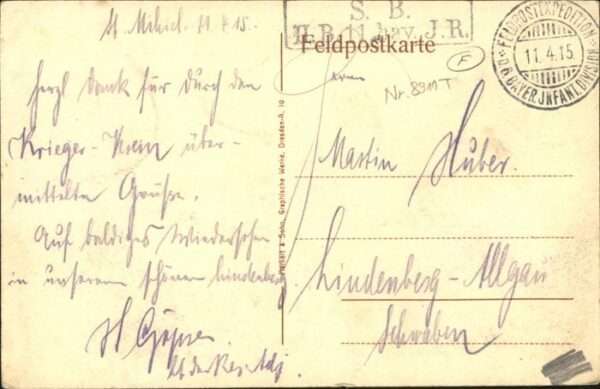 St. Mihiel. 11.4.15.
Herzl Dank für durch den
Krieger-Krenn über-
mittelte Grüsse.
Auf baldiges Wiedersehn
in unserem schönen Lindenberg.
Lt der Res. Adj.
S. B.
II. B. 11. bay. J.R.
Feldpostkarte
FELDPOSTEXPEDITION
11.4.15
BAYER.INFANT.DIVISION
F
Nr. 8911 T
Herrn
Martin Huber.
Lindenberg-Allgäu
Schwaben
Graphische Werke, Dresden-A. 16